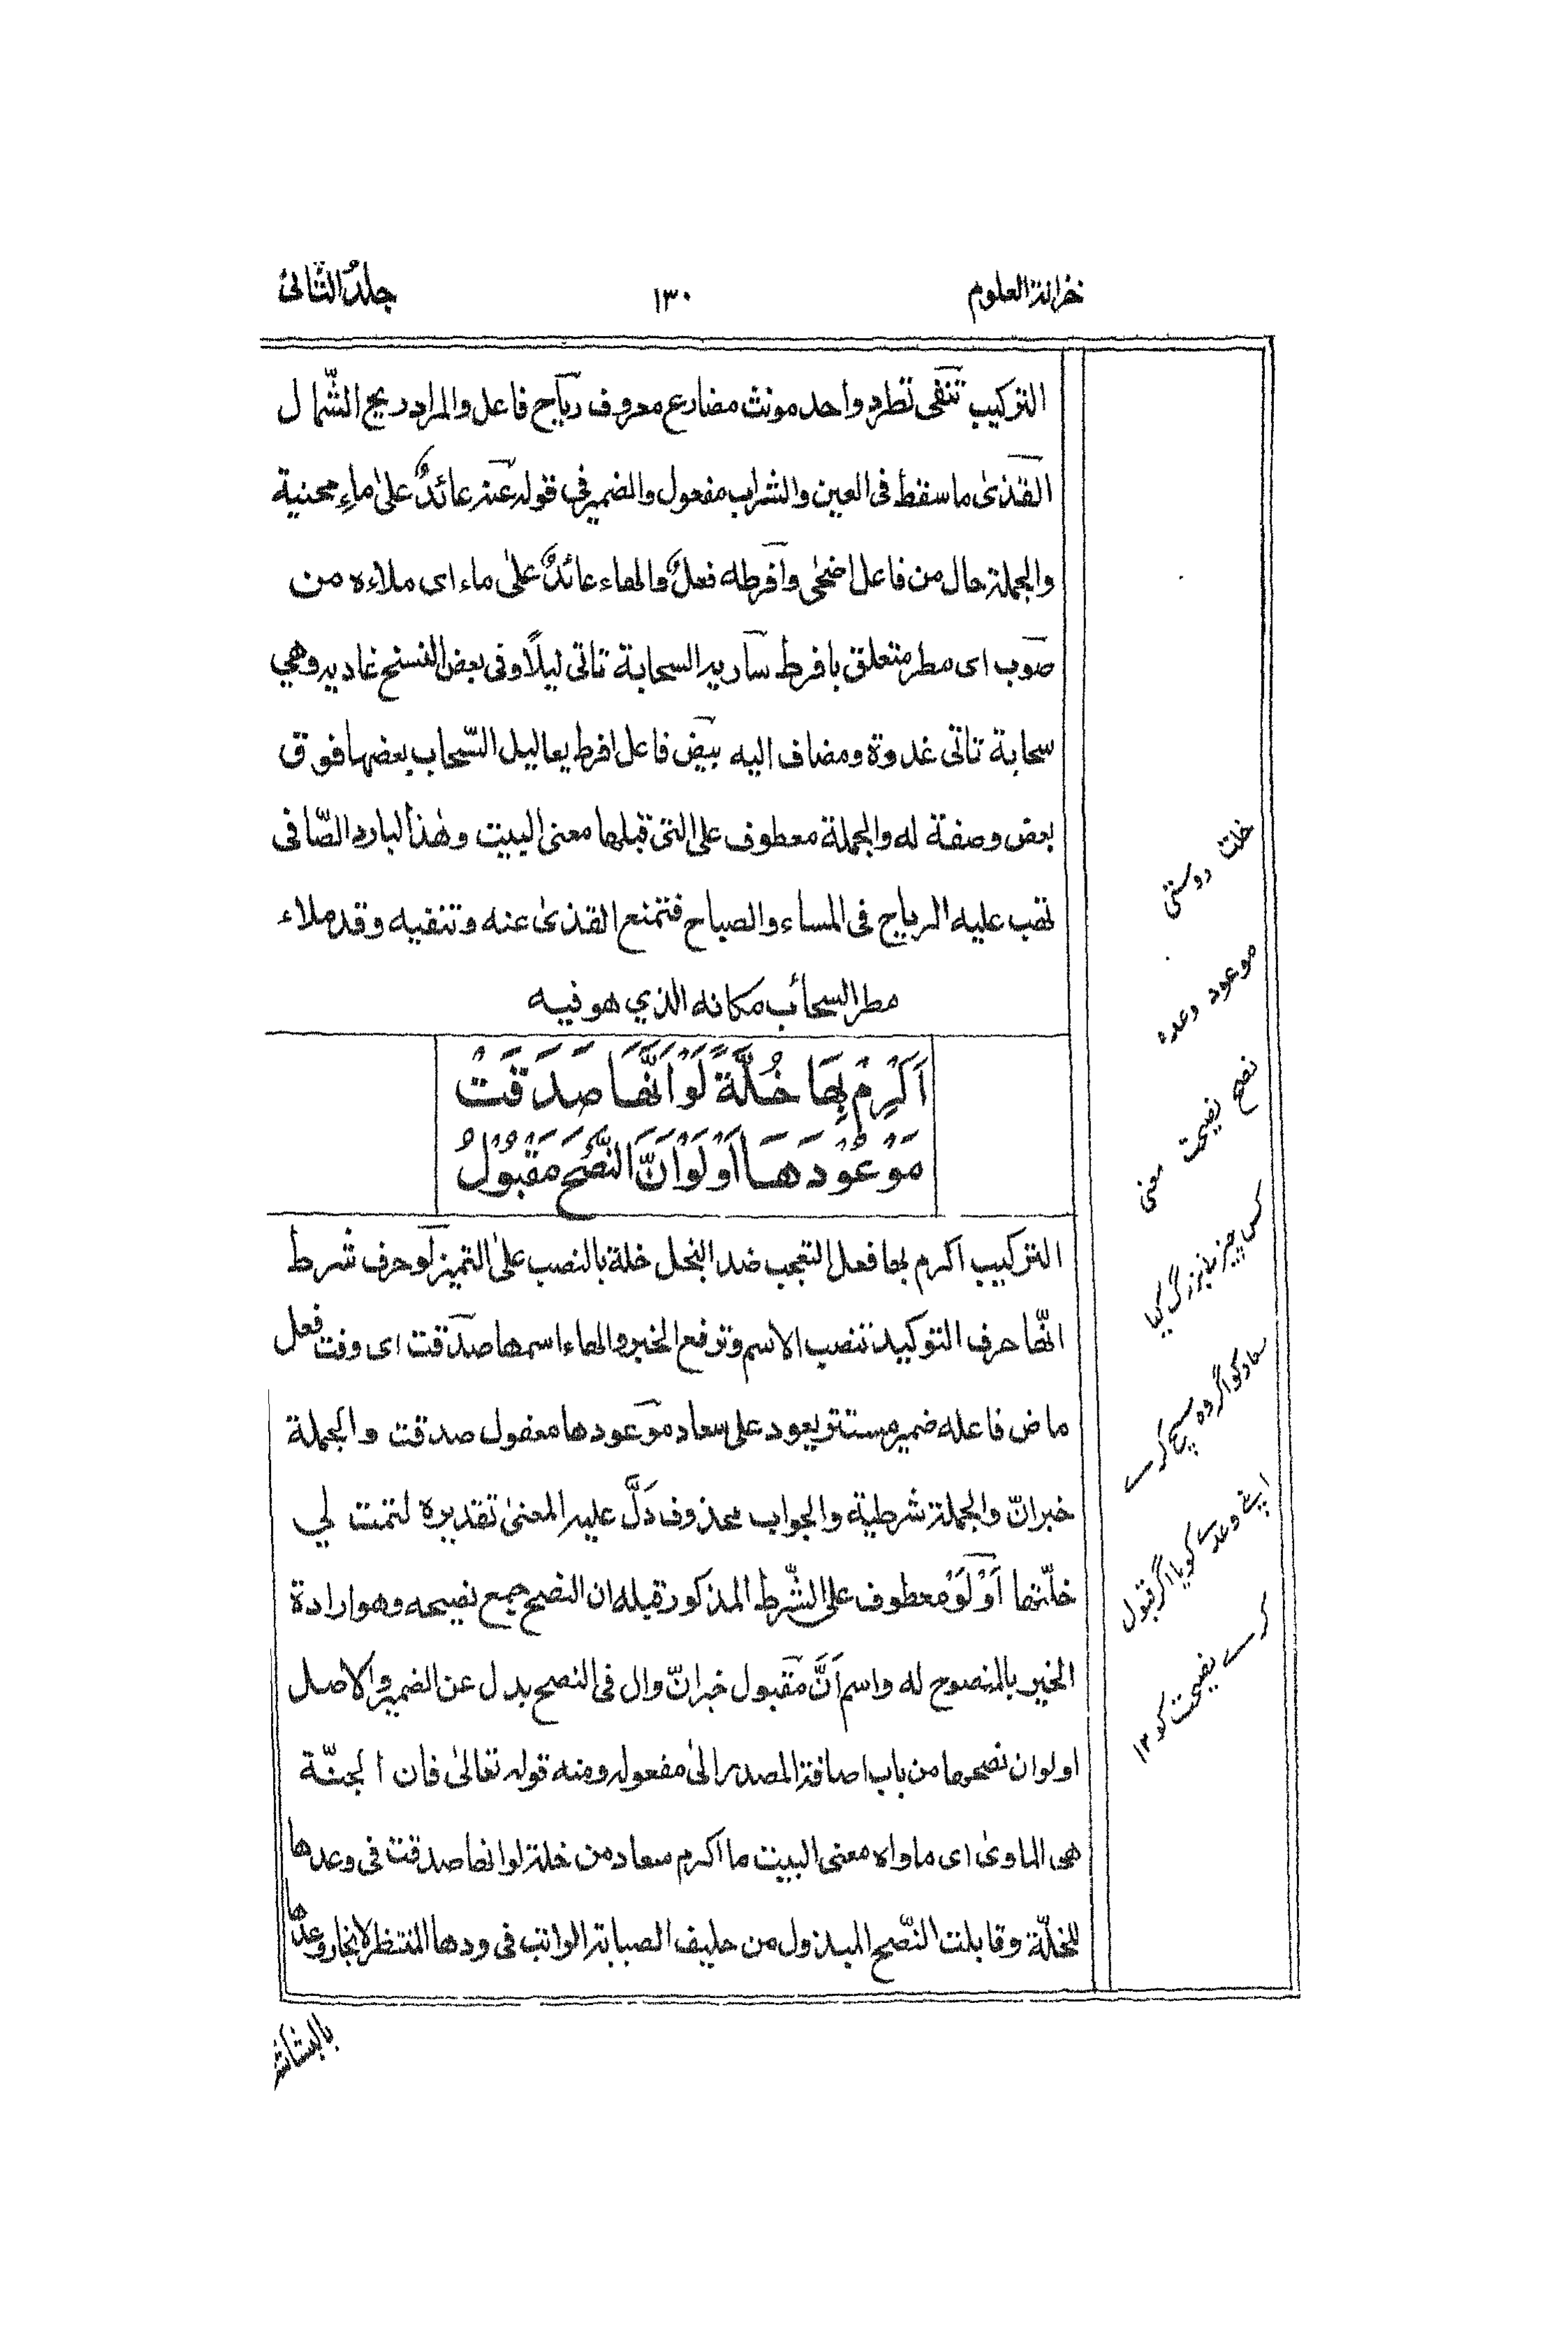 خزانة العلوم
١٣٠
جلدُ الثّانی
التركيب تنفى تطرد واحد مونث مضارع معروف رياح فاعل والمراد ريح الشّمال
القذىٰ ما سقط فى العين والشراب مفعول والضمير فى قوله عنه عائدٌ علىٰ ماءِ محنية
والجملة حال من فاعل اضحٰى وافرطه فعلٌ والهاء عائدٌ علىٰ ماء اى ملاءه من
صوب اى مطر متعلق بافرط سارية السحابة تاتى ليلًا وفى بعض النسخ غادية وهي
سحابة تاتى غدوة ومضاف اليه بيض فاعل افرط يعاليل السّحاب بعضها فوق
بعض وصفة له والجملة معطوف على التى قبلها معنى البيت وهٰذا البارد الصّافى
تهب عليه الرياح فى المساء والصباح فتمنع القذىٰ عنه وتنقيه وقد ملاء
مطر السحائب مكانه الذي هو فيه
اَكْرِمْ بِهَا خُلَّةً لَوْ اَنَّهَا صَدَقَتْ
مَوْعُوْدَهَا اَوْ لَوْ اَنَّ النُّصْحَ مَقْبُوْلُ
التركيب اكرم بها فعل التعجب ضد البخل خلة بالنصب علىٰ التميز لو حرف شرط
انّها حرف التوكيد تنصب الاسم وترفع الخبر والهاء اسمها صدقت اى وفت فعل
ماض فاعله ضمير مستتر يعود على سعاد موعودها مفعول صدقت والجملة
خبر انّ والجملة شرطية والجواب محذوف دَلَّ عليه المعنىٰ تقديره لتمت لي
خلّتها اَوْ لَوْ معطوف على الشّرط المذكور قبله ان النصح جمع نصيحه وهو ارادة
الخير بالمنصوح له واسم اَنَّ مقبول خبر انّ وال فى النصح بدل عن الضمير والاصل
او لو ان نصحها من باب اضافة المصدر الىٰ مفعوله ومنه قوله تعالىٰ فان الجنّة
هى الماوىٰ اى ماواه معنى البيت ما اكرم سعاد من خلة لو انها صدقت فى وعدها
للخلّة وقابلت النّصح المبذول من حليف الصبابة الواثب فى ودها المنتظر لانجاز وعدها
بالبشاشة
خلت دوستی
موعود وعده
نصح نصیحت معنی
کس چیز نے بزرگ کیا
سعاد کو اگر وہ سچ کرے
اپنے وعدے کو یا اگر قبول
کرے نصیحت کو ۱۳